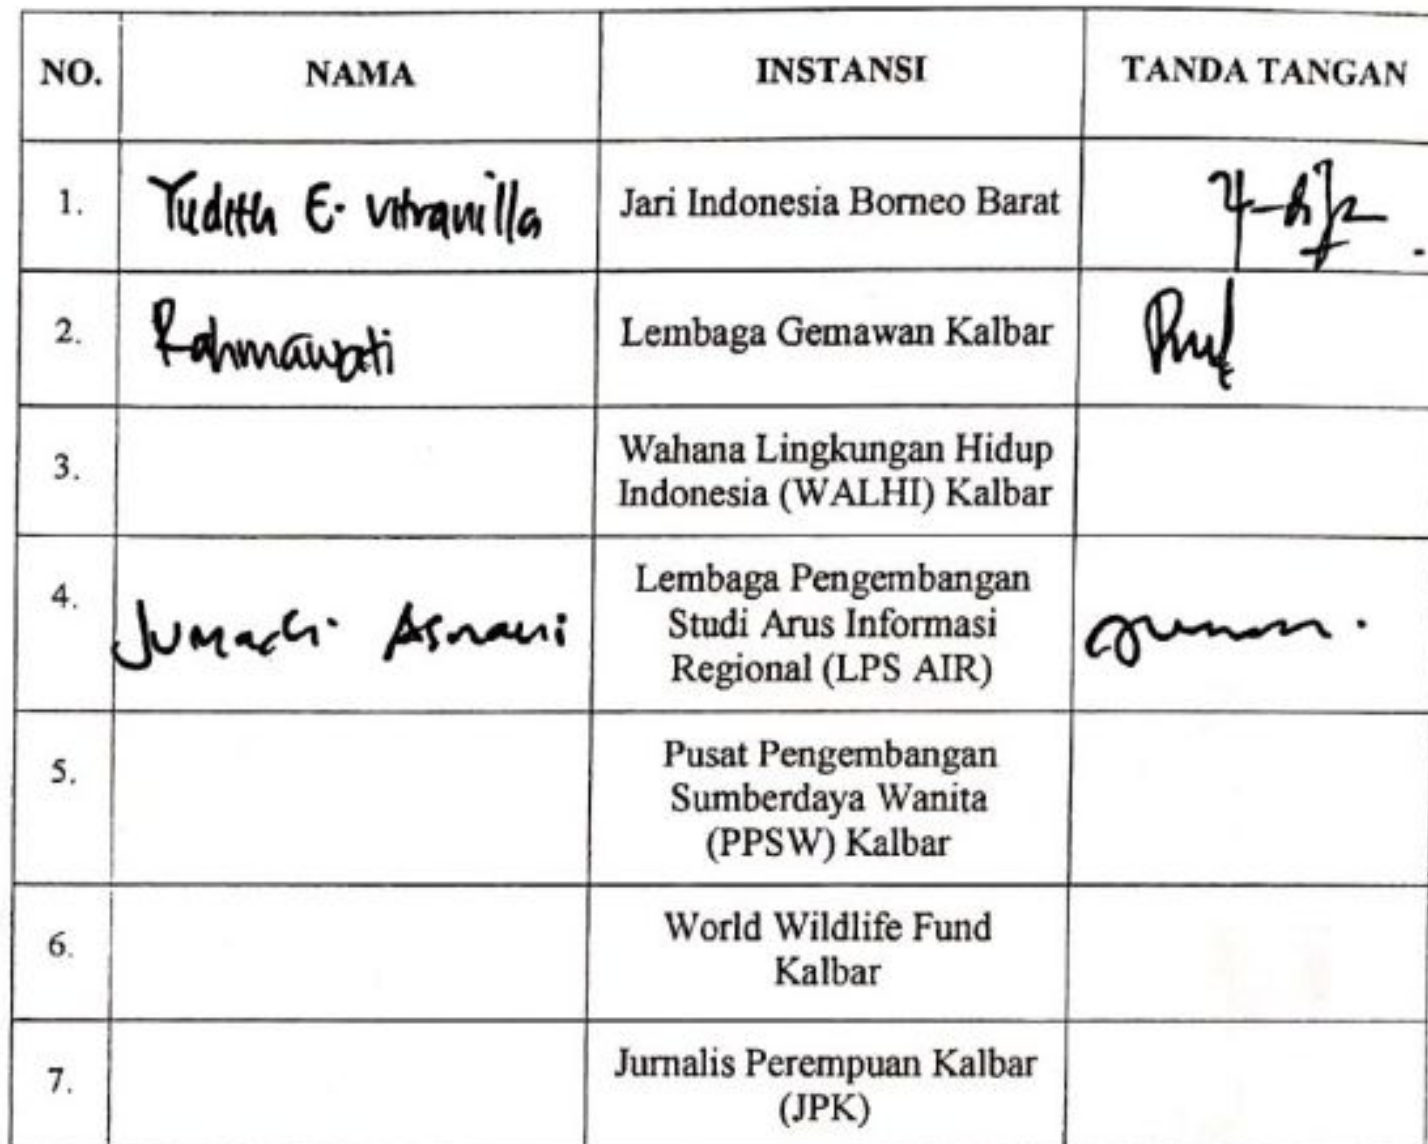 NO. NAMA INSTANSI TANDA TANGAN
1. Yudith E. Vitranilla Jari Indonesia Borneo Barat
2. Rahmawati Lembaga Gemawan Kalbar
3. Wahana Lingkungan Hidup
Indonesia (WALHI) Kalbar
4. Lembaga Pengembangan
Jumadi Asmawi Studi Arus Informasi
Regional (LPS AIR)
5. Pusat Pengembangan
Sumberdaya Wanita
(PPSW) Kalbar
6. World Wildlife Fund
Kalbar
7. Jurnalis Perempuan Kalbar
(JPK)